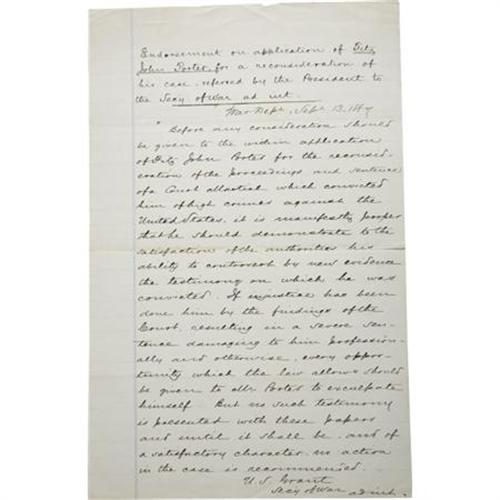 Endorsement on application of Fitz
John Porter, for a reconsideration of
his case, referred by the President to
the Secy of War ad int.
War Dept., Sept. 13.
"Before any consideration should
be given to the within application
of Fitz John Porter for the reconsid-
eration of the Proceedings and sentence
of a Court Martial which convicted
him of high crimes against the
United States, it is manifestly proper
that he should demonstrate to the
satisfaction of the authorities his
ability to controvert by new evidence
the testimony on which he was
convicted. If injustice has been
done him by the findings of the
Court, resulting in a severe sen-
tence damaging to him profession-
ally and otherwise, every oppor-
tunity which the law allows should
be given to Mr Porter to exculpate
himself. But no such testimony
is presented with these papers
and until it shall be, and of
a satisfactory character, no action
in the case is recommended.
U. S. Grant
Secy of War ad int.